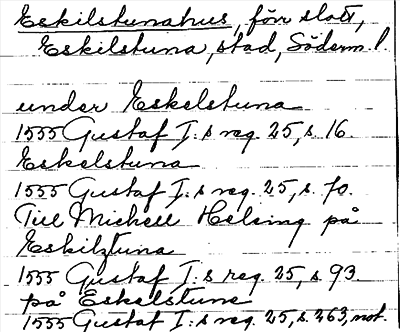 Eskilstunahus, förr slott,
Eskilstuna, stad, Söderm. l.
under Eskelstuna
1555 Gustaf I:s reg. 25, s. 16.
Eskelstuna
1555 Gustaf I:s reg. 25, s. 70.
Till Michell Helsing på
Eskilztuna
1555 Gustaf I:s reg. 25, s. 93.
på Eskelstune
1555 Gustaf I:s reg. 25, s. 263, not.